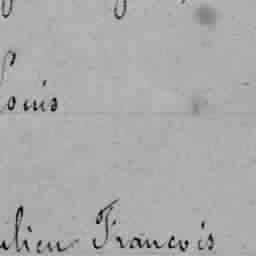 Louis
ulien François